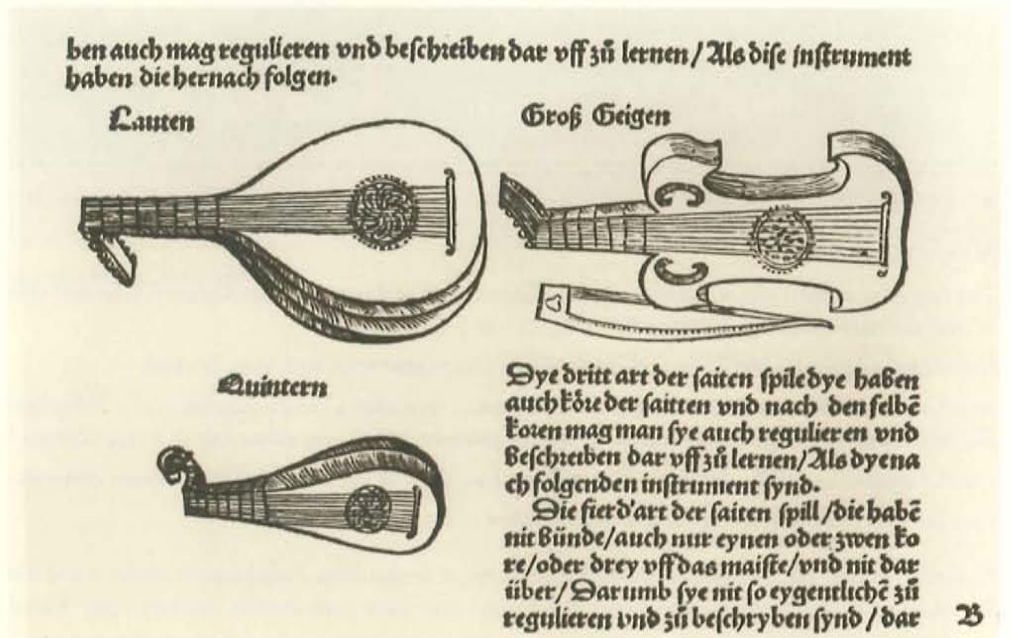 ben auch mag regulieren vnd beschreiben dar vff zů lernen / Als dise instrument
haben die hernach folgen.
Lauten
Groß Geigen
Quintern
Dye dritt art der saiten spile dye haben
auch kőre der saitten vnd nach den selbē
koren mag man sye auch regulieren vnd
beschreiben dar vff zů lernen/Als dyena
ch folgenden instrument synd.
Die fierd' art der saiten spill /die habē
nit bünde/auch nur eynen oder zwen ko
re/oder drey vff das maiste/vnd nit dar
über/ Darumb sye nit so eygentlichē zů
regulieren vnd zů beschryben synd / dar
B